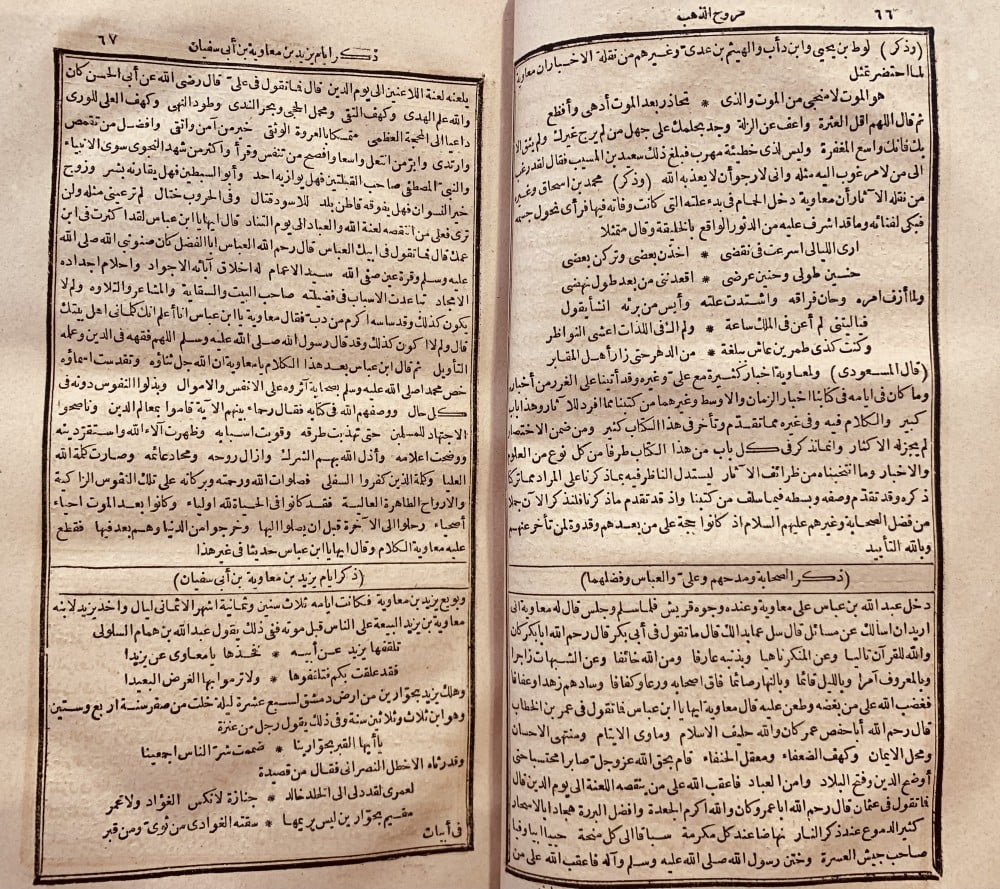 ٦٦
مروج الذهب
(وذكر) لوط بن يحيى وابن دأب والهيثم بن عدى وغيرهم من نقلة الاخباران معاوية
لما احتضر تمثل
هو الموت لا منجى من الموت والذى * تحاذر بعد الموت أدهى وأفظع
ثم قال اللهم اقل العثرة واعف عن الزلة وجد بحلمك على جهل من لم يرج غيرك ولم يثق الا
بك فانك واسع المغفرة وليس لذى خطيئة مهرب فبلغ ذلك سعيد بن المسيب فقال لقد رغب
الى من لا مرغوب اليه مثله وانى لارجو أن لا يعذبه الله (وذكر) محمد بن اسحاق وغيره
من نقلة الآثار أن معاوية دخل الحمام فى بدء علته التى كانت وفاته فيها فرأى نحول جسمه
فبكى لفنائه وما قد اشرف عليه من الدثور الواقع بالخليقة وقال متمثلا
ارى الليالى اسرعت فى نقضى * اخذن بعضى وتركن بعضى
حنين طولى وحنين عرضى * اقعدننى من بعد طول نهضى
ولما أزف امره وحان فراقه واشتدت علته وأيس من برئه انشأ يقول
فياليتنى لم أعن فى الملك ساعة * ولم الك فى اللذات اعشى النواظر
وكنت كذى طمرين عاش ببلغة * من الدهر حتى زار أهل المقابر
(قال المسعودى) ولمعاوية اخبار كثيرة مع على وغيره وقد أتينا على الغرر من أخباره
وما كان فى ايامه فى كتابنا اخبار الزمان والاوسط وغيرهما من كتبنا مما افرد للآثار وهذا باب
كبير والكلام فيه وفى غيره مما تقدم وتأخر فى هذا الكتاب كثير ومن ضمن الاختصار
لم يجز له الاكثار وانما نذكر فى كل باب من هذا الكتاب طرفا من كل نوع من العلوم
والاخبار وما انتخبناه من طرائف الآثار ليستدل الناظر فيه بما ذكرنا على المراد مما تركنا
ذكره وقد تقدم وصفه وبسطه فيما سلف من كتبنا واذ قد تقدم ما ذكرنا فلنذكر الآن جملا
من فضل الصحابة وغيرهم عليهم السلام اذ كانوا حجة على من بعدهم وقدوة لمن تأخر عنهم
وبالله التأييد
(ذكر الصحابة ومدحهم وعلى والعباس وفضلهما)
دخل عبد الله بن عباس على معاوية وعنده وجوه قريش فلما سلم وجلس قال له معاوية انى
اريد ان اسالك عن مسائل قال سل عما بدا لك قال ما تقول فى أبى بكر قال رحم الله ابا بكر كان
والله للقرآن تاليا وعن المنكر ناهيا وبذنبه عارفا ومن الله خائفا وعن الشبهات زاجرا
وبالمعروف آمرا وبالليل قائما وبالنهار صائما فاق اصحابه ورعا وكفافا وسادهم زهدا وعفافا
فغضب الله على من بغضه وطعن عليه قال معاوية ايها يا ابن عباس فما تقول فى عمر بن الخطاب
قال رحم الله أبا حفص عمر كان والله حليف الاسلام وماوى الايتام ومنتهى الاحسان
ومحل الايمان وكهف الضعفاء ومعقل الحنفاء قام بحق الله عز وجل صابرا محتسبا حتى
أوضح الدين وفتح البلاد وامن العباد فاعقب الله على من ينقصه اللعنة الى يوم الدين قال
فما تقول فى عثمان قال رحم الله ابا عمرو كان والله اكرم الجعدة وافضل البررة هجادا بالاسحار
كثير الدموع عند ذكر النار نهاضا عند كل مكرمة سباقا الى كل منحة حييا ابيا وفيا
صاحب جيش العسرة وختن رسول الله صلى الله عليه وسلم وآله فاعقب الله على من
ذكر ايام يزيد بن معاوية بن أبى سفيان
٦٧
يلعنه لعنة اللاعنين الى يوم الدين قال فما تقول فى على قال رضى الله عن أبى الحسن كان
والله علم الهدى وكهف التقى ومحل الحجى وبحر الندى وطود النهى وكهف العلى للورى
داعيا الى المحجة العظمى متمسكا بالعروة الوثقى خير من آمن واتقى وافضل من تقمص
وارتدى وابر من انتعل وسعا وافصح من تنفس وقرأ واكثر من شهد النجوى سوى الانبياء
والنبى المصطفى صاحب القبلتين فهل يوازيه احد وأبو السبطين فهل يقارنه بشر وزوج
خير النسوان فهل يفوقه قاطن بلد للاسود قتال وفى الحروب ختال لم تر عينى مثله ولن
ترى فعلى من انتقصه لعنة الله والعباد الى يوم التناد قال ايها يا ابن عباس لقد اكثرت فى ابن
عمك قال فما تقول فى ابيك العباس قال رحم الله العباس ابا الفضل كان صنو نبى الله صلى الله
عليه وسلم وقرة عين صفى الله سيد الاعمام له اخلاق آبائه الاجواد واحلام اجداده
الامجاد تباعدت الاسباب فى فضيلته صاحب البيت والسقاية والمشاعر والتلاوة ولم لا
يكون كذلك وقد ساسه اكرم من دب فقال معاوية يا ابن عباس انا أعلم انك كلمانى اهل بيتك
قال ولم لا اكون كذلك وقد قال رسول الله صلى الله عليه وسلم اللهم فقهه فى الدين وعلمه
التأويل ثم قال ابن عباس بعد هذا الكلام يا معاوية ان الله جل ثناؤه وتقدست اسماؤه
خص محمدا صلى الله عليه وسلم بصحابة آثروه على الانفس والاموال وبذلوا النفوس دونه فى
كل حال ووصفهم الله فى كتابه فقال رحماء بينهم الآية قاموا بمعالم الدين وناصحوا
الاجتهاد للمسلمين حتى تهذبت طرقه وقويت اسبابه وظهرت آلاء الله واستقر دينه
ووضحت اعلامه وأذل الله بهم الشرك وازال روحه ومحا دعائمه وصارت كلمة الله
العليا وكلمة الذين كفروا السفلى فصلوات الله ورحمته وبركاته على تلك النفوس الزاكية
والارواح الطاهرة العالية فقد كانوا فى الحياة لله اولياء وكانوا بعد الموت احياء
أصحاء رحلوا الى الآخرة قبل ان يصلوا اليها وخرجوا من الدنيا وهم بعد فيها فقطع
عليه معاوية الكلام وقال ايها يا ابن عباس حديثا فى غير هذا
(ذكر ايام يزيد بن معاوية بن أبى سفيان)
وبويع يزيد بن معاوية فكانت ايامه ثلاث سنين وثمانية اشهر الا ثمانى ليال واخذ يزيد لابنه
معاوية بن يزيد البيعة على الناس قبل موته ففى ذلك يقول عبد الله بن همام السلولى
تلقفها يزيد عن أبيه * فخذها يا معاوى عن يزيدا
فقد علقت بكم فتلقفوها * ولا ترموا بها الغرض البعيدا
وهلك يزيد بحوّارين من ارض دمشق لسبع عشرة ليلة خلت من صفر سنة اربع وستين
وهو ابن ثلاث وثلاثين سنة وفى ذلك يقول رجل من عنزة
يا أيها القبر بحوّارينا * ضممت شر الناس اجمعينا
وقد رثاه الاخطل النصرانى فقال من قصيدة
لعمرى لقد دلى الى اللحد خالد * جنازة لا نكس الفؤاد ولا غمر
مقيم بحوّارين ليس يريمها * سقته الغوادى من ثوىّ ومن قبر
فى أبيات